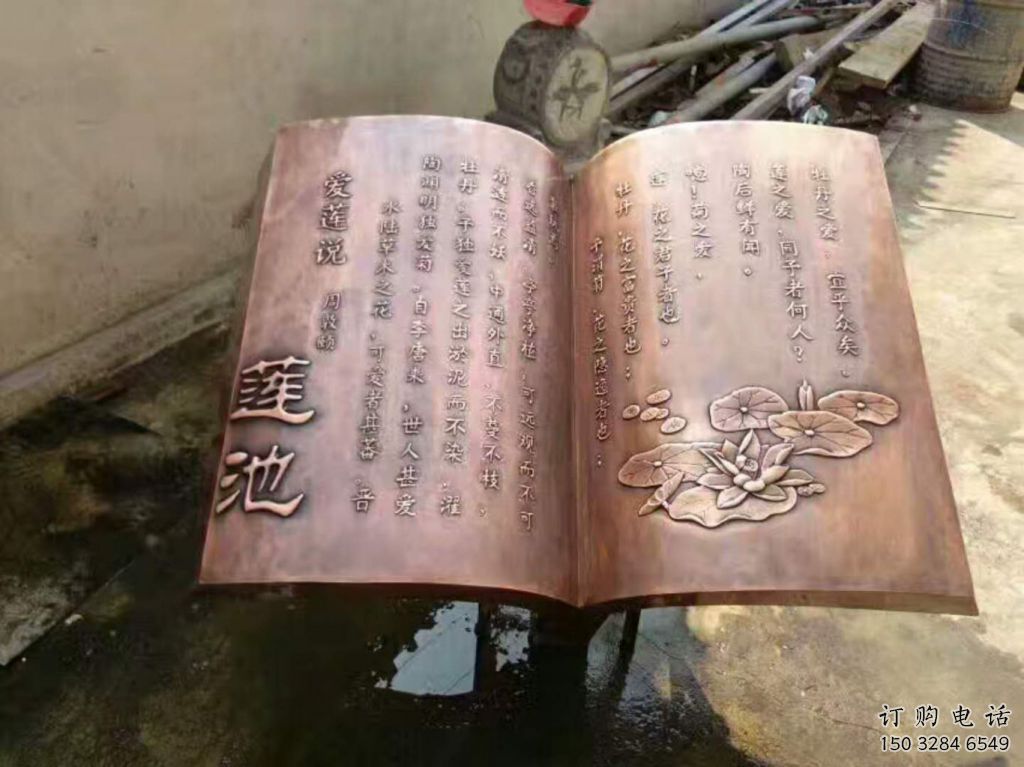 莲池
爱莲说 周敦颐
水陆草木之花，可爱者甚蕃。晋
陶渊明独爱菊。自李唐来，世人甚爱
牡丹。予独爱莲之出淤泥而不染，濯
清涟而不妖，中通外直，不蔓不枝，
香远益清，亭亭净植，可远观而不可
亵玩焉。
予谓菊，花之隐逸者也；
牡丹，花之富贵者也；
莲，花之君子者也。
噫！菊之爱，
陶后鲜有闻。
莲之爱，同予者何人？
牡丹之爱，宜乎众矣。
订购电话
150 3284 6549